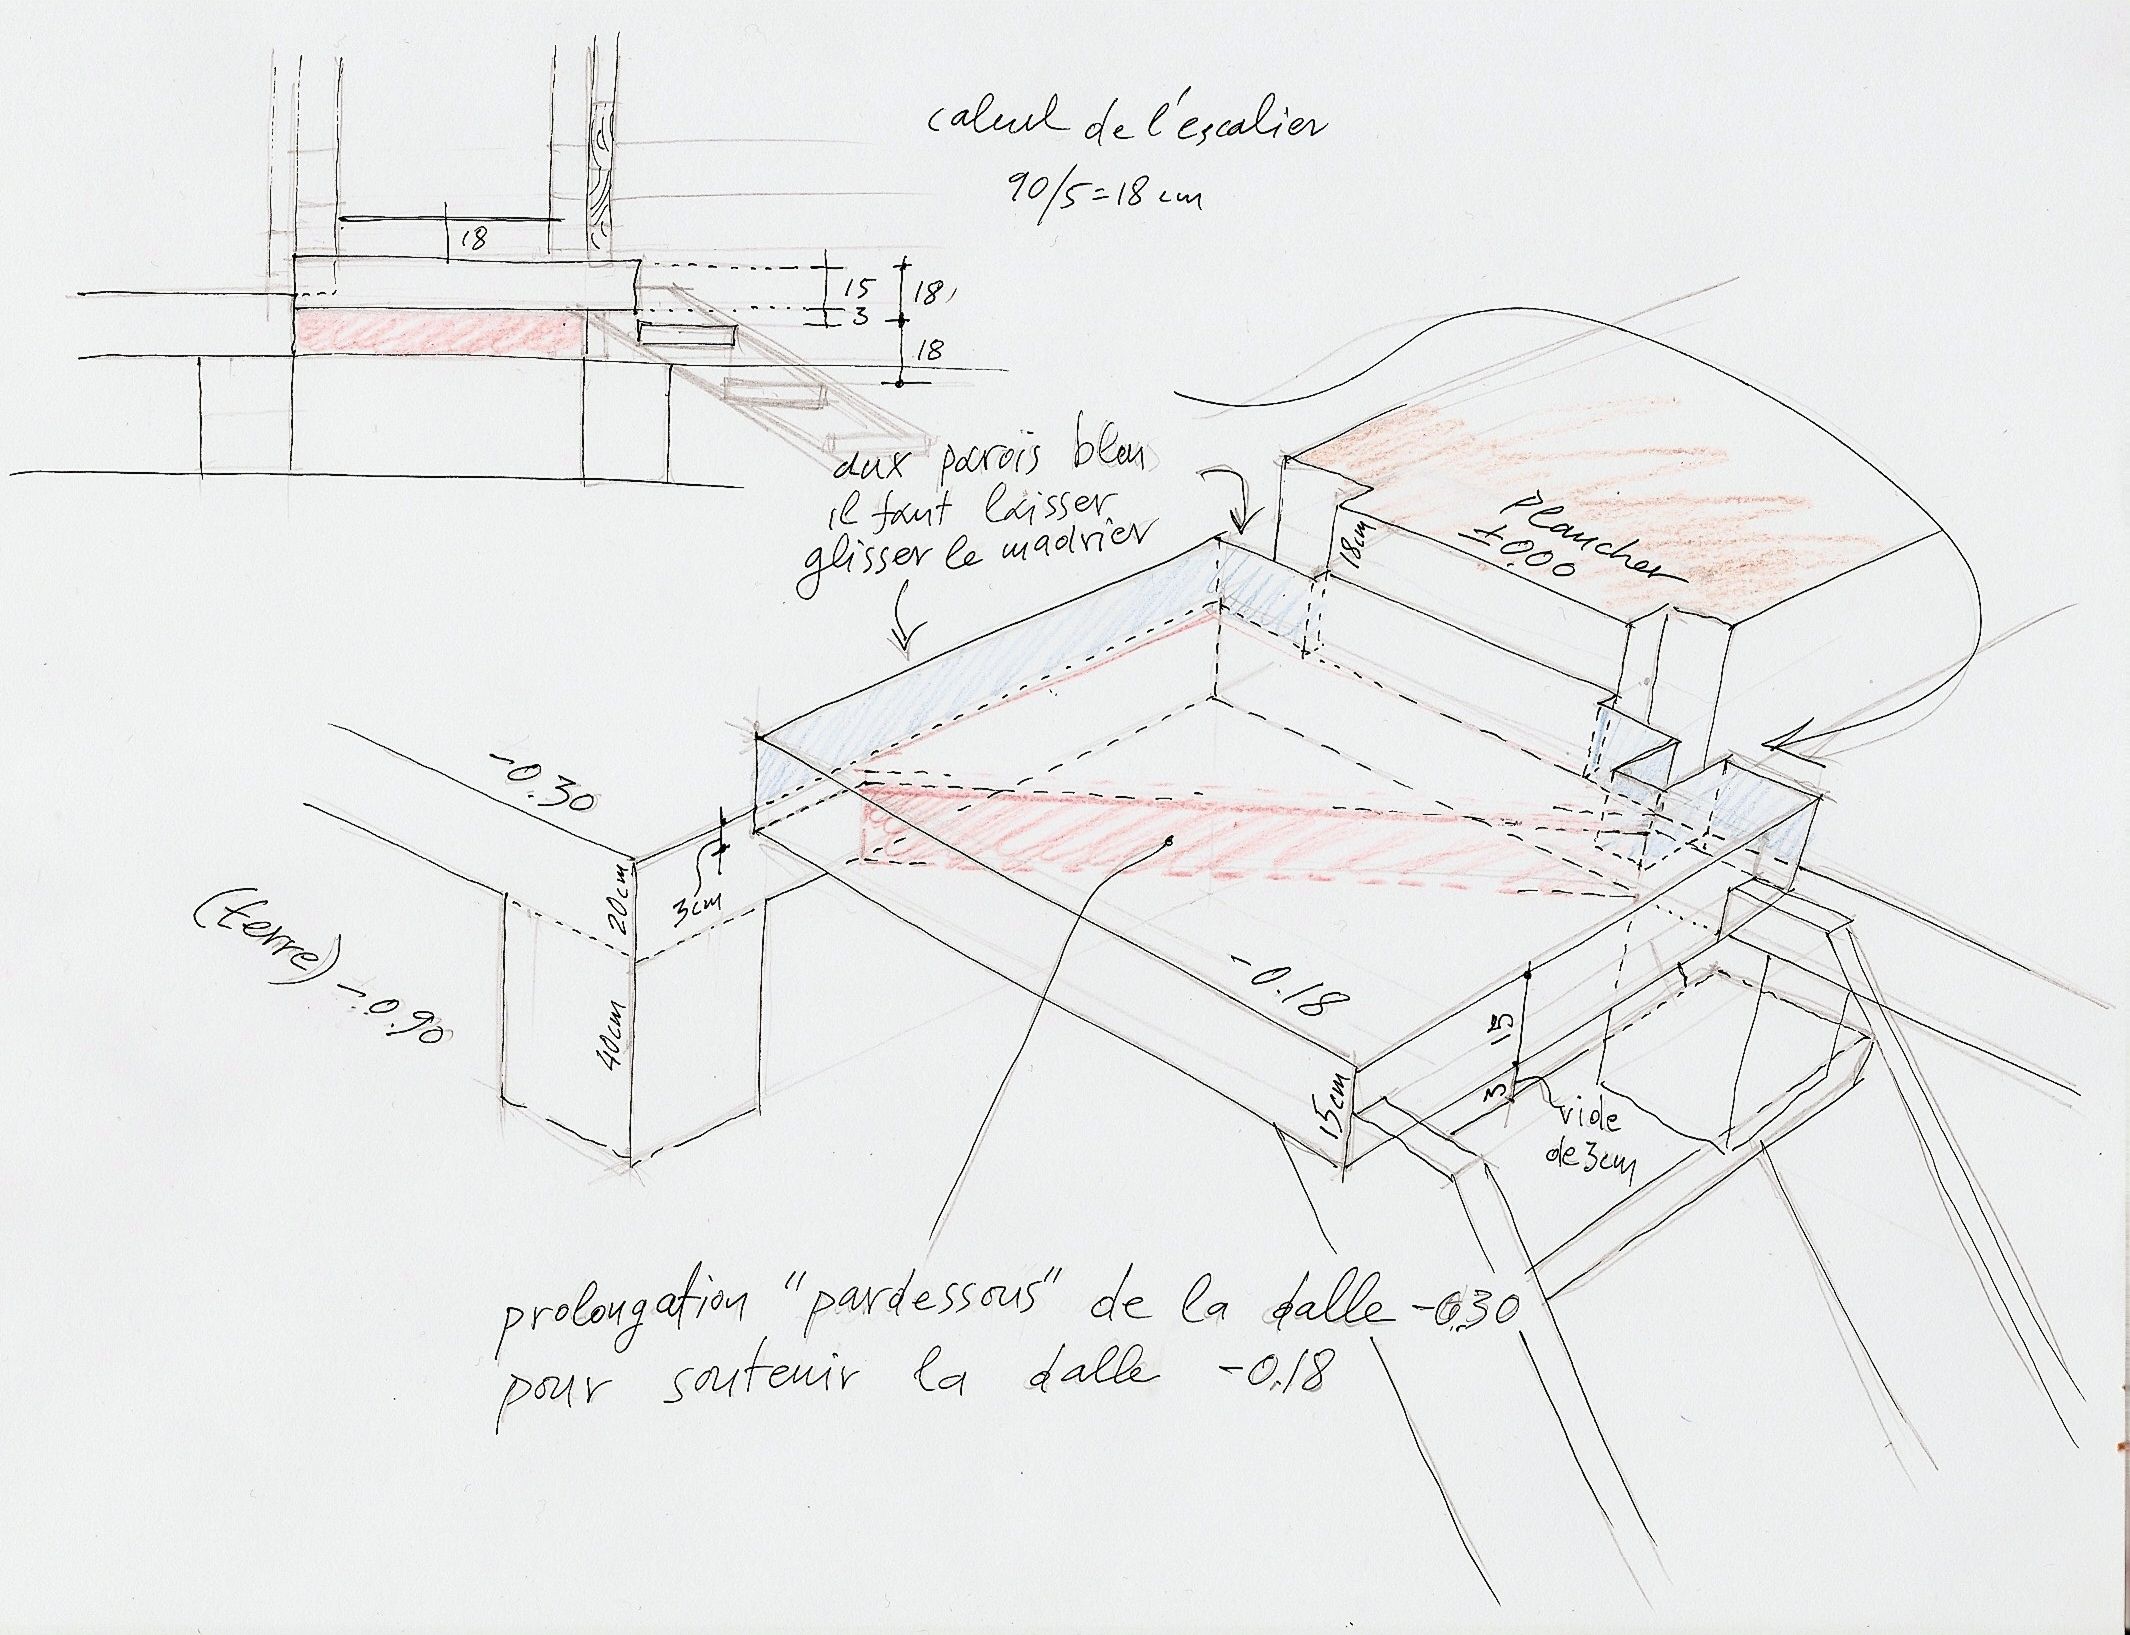 calcul de l'escalier
90/5=18 cm
18
15
3
18
18
aux parois bleu
il faut laisser
glisser le madrier
18cm
plancher
±0.00
-0.30
20cm
3cm
(terre) -0.90
40cm
-0.18
15
3
15cm
vide
de 3cm
prolongation "pardessous" de la dalle -0.30
pour soutenir la dalle -0.18